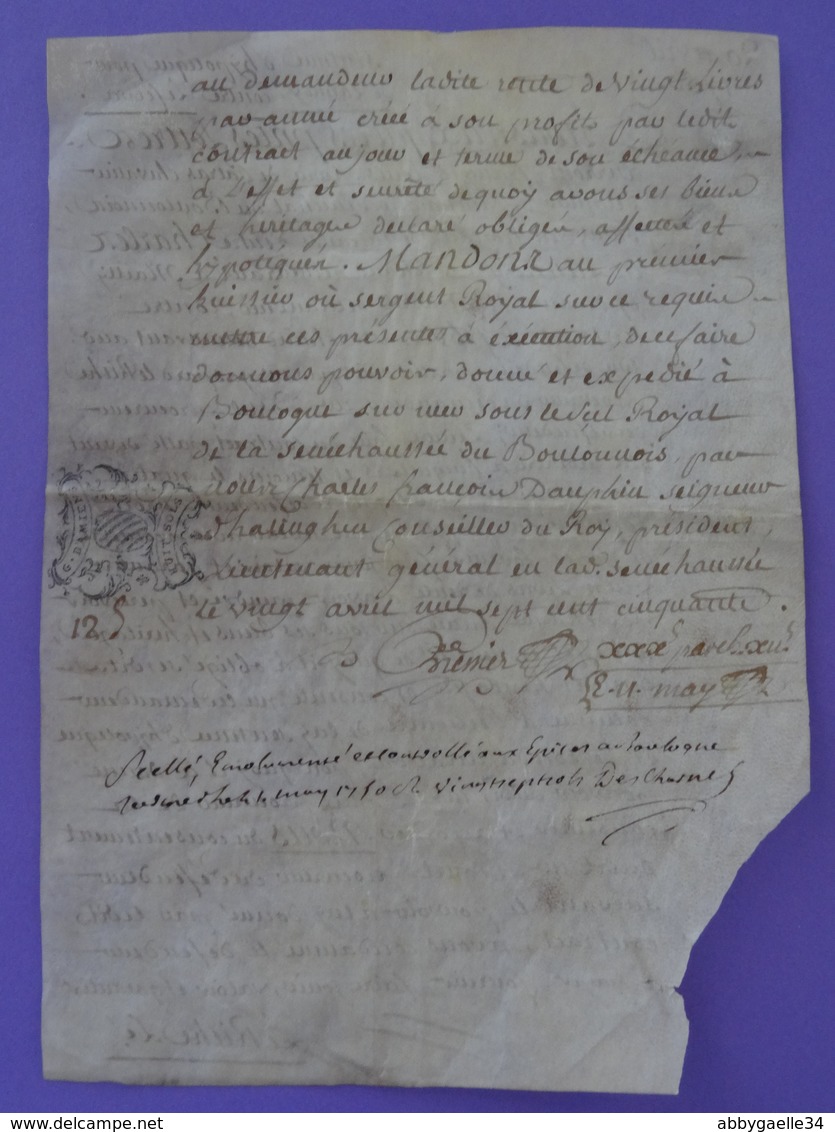 au demandeur ladite rente de Vingt Livres
par année créée à son profit par ledit
contract au jour et terme de son échéance,
à l'effet et sureté dequoy avons ses biens
et héritages declaré obligés, affectés et
hypotiqués. Mandons au premier
huissier où sergent Royal sur ce requis
mettre ces présentes à éxécution, de ce faire
donnons pouvoir, donné et expedié à
Boulogne sur mer sous le Scel Royal
de la senéchaussée du Boulonnois, par
nous Charles françois Dauphin seigneur
d'halinghen Conseiller du Roy, président,
Lieutenant général en lad. senéchaussée
le vingt avril mil sept cent cinquante.
12 s
G. D'AMIENS
xxx s parch. xii s
Le 11 may
Scellé, Emolumenté et controllé aux Epices a Boulogne
may 1750 vingt sept sols DesChasne
www.delcampe.net
abbygaelle34